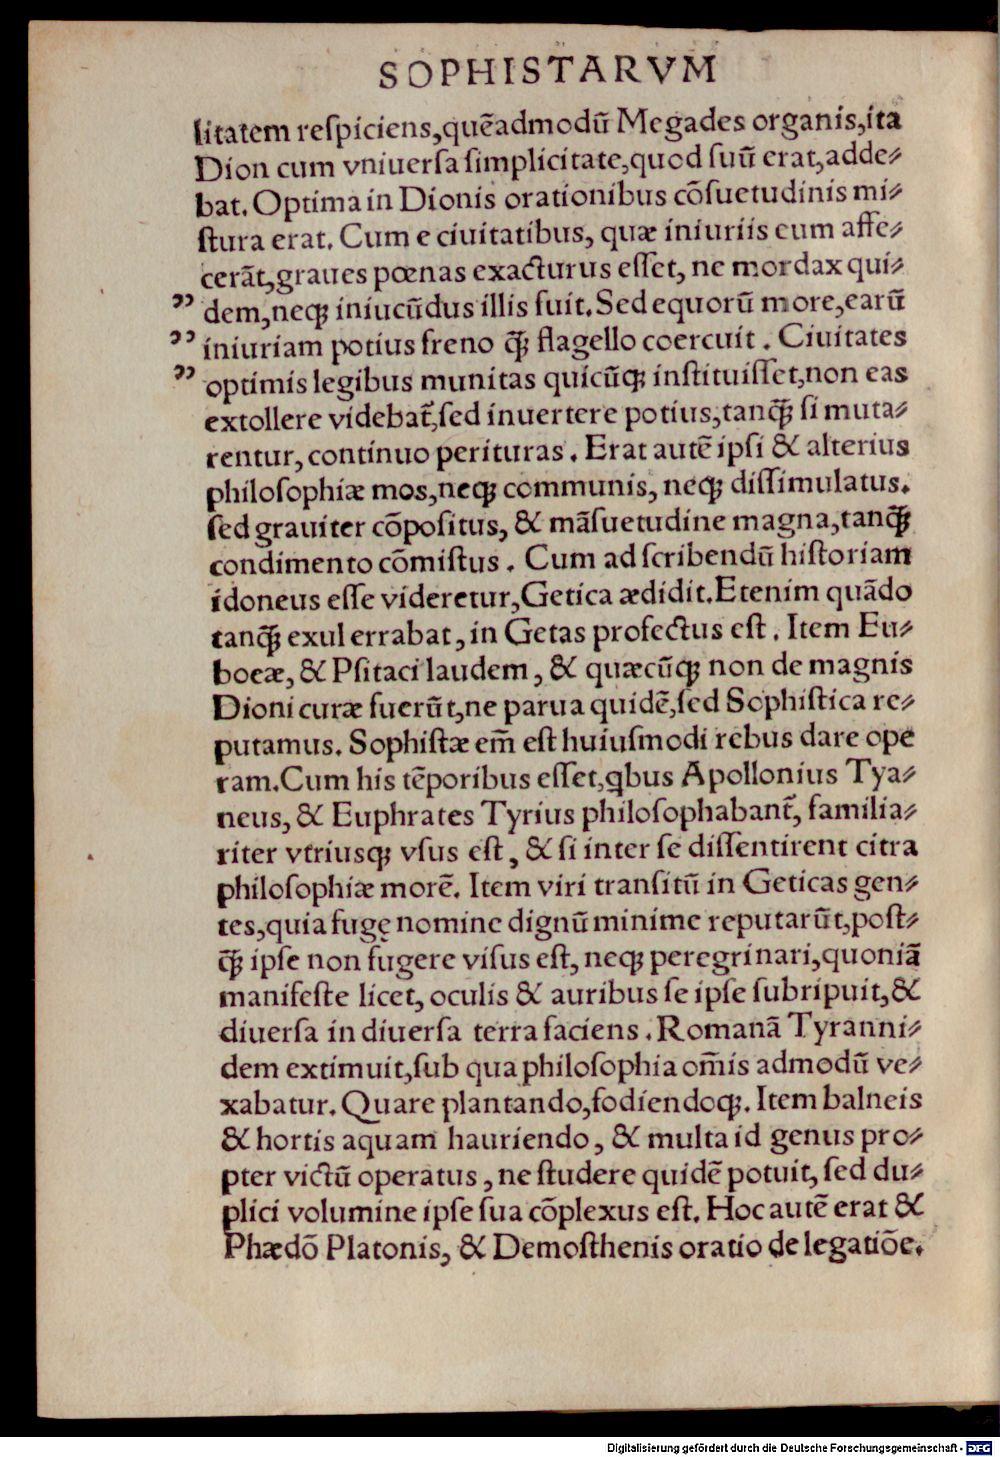 SOPHISTARVM
litatem reſpiciens,quēadmodū Megades organis,ita
Dion cum vniuerſa simplicitate,quod ſuū erat,adde⸗
bat. Optima in Dionis orationibus cōſuetudinis mi⸗
ſtura erat. Cum e ciuitatibus, quæ iniuriis eum affe⸗
cerāt,graues pœnas exacturus eſſet, ne mordax qui⸗
„ dem,neqꝫ iniucūdus illis fuit. Sed equorū more,earū
„ iniuriam potius freno q̄ꝫ flagello coercuit . Ciuitates
„ optimis legibus munitas quicūqꝫ inſtituiſſet,non eas
extollere videbat̃,ſed inuertere potius,tanq̄ꝫ ſi muta⸗
rentur, continuo perituras . Erat autē ipſi & alterius
philoſophiæ mos,neqꝫ communis, neqꝫ diſſimulatus.
ſed grauiter cōpoſitus, & māſuetudine magna,tanq̄ꝫ
condimento cōmiſtus . Cum ad ſcribendū hiſtoriam
idoneus eſſe videretur,Getica ædidit.Etenim quādo
tanq̄ꝫ exul errabat, in Getas profectus eſt . Item Eu⸗
boeæ, & Pſitaci laudem , & quæcūqꝫ non de magnis
Dioni curæ fuerūt,ne parua quidē,ſed Sophiſtica re⸗
putamus. Sophiſtæ em̄ eſt huiuſmodi rebus dare ope
ram.Cum his tēporibus eſſet,qbus Apollonius Tya⸗
neus, & Euphrates Tyrius philoſophabant̃, familia⸗
riter vtriusqꝫ vſus eſt , & ſi inter ſe diſſentirent citra
philoſophiæ morē. Item viri tranſitū in Geticas gen⸗
tes,quia fugę nomine dignū minime reputarūt,poſt⸗
q̄ꝫ ipſe non fugere viſus eſt, neqꝫ peregrinari,quoniā
manifeſte licet, oculis & auribus ſe ipſe ſubripuit,&
diuerſa in diuerſa terra faciens . Romanā Tyranni⸗
dem extimuit,ſub qua philoſophia om̄is admodū ve⸗
xabatur. Quare plantando,fodiendoqꝫ. Item balneis
& hortis aquam hauriendo , & multa id genus pro⸗
pter victū operatus , ne ſtudere quidē potuit, ſed du⸗
plici volumine ipſe ſua cōplexus eſt. Hoc autē erat &
Phædō Platonis, & Demoſthenis oratio de legatiōe.
Digitalisierung gefördert durch die Deutsche Forschungsgemeinschaft - DFG